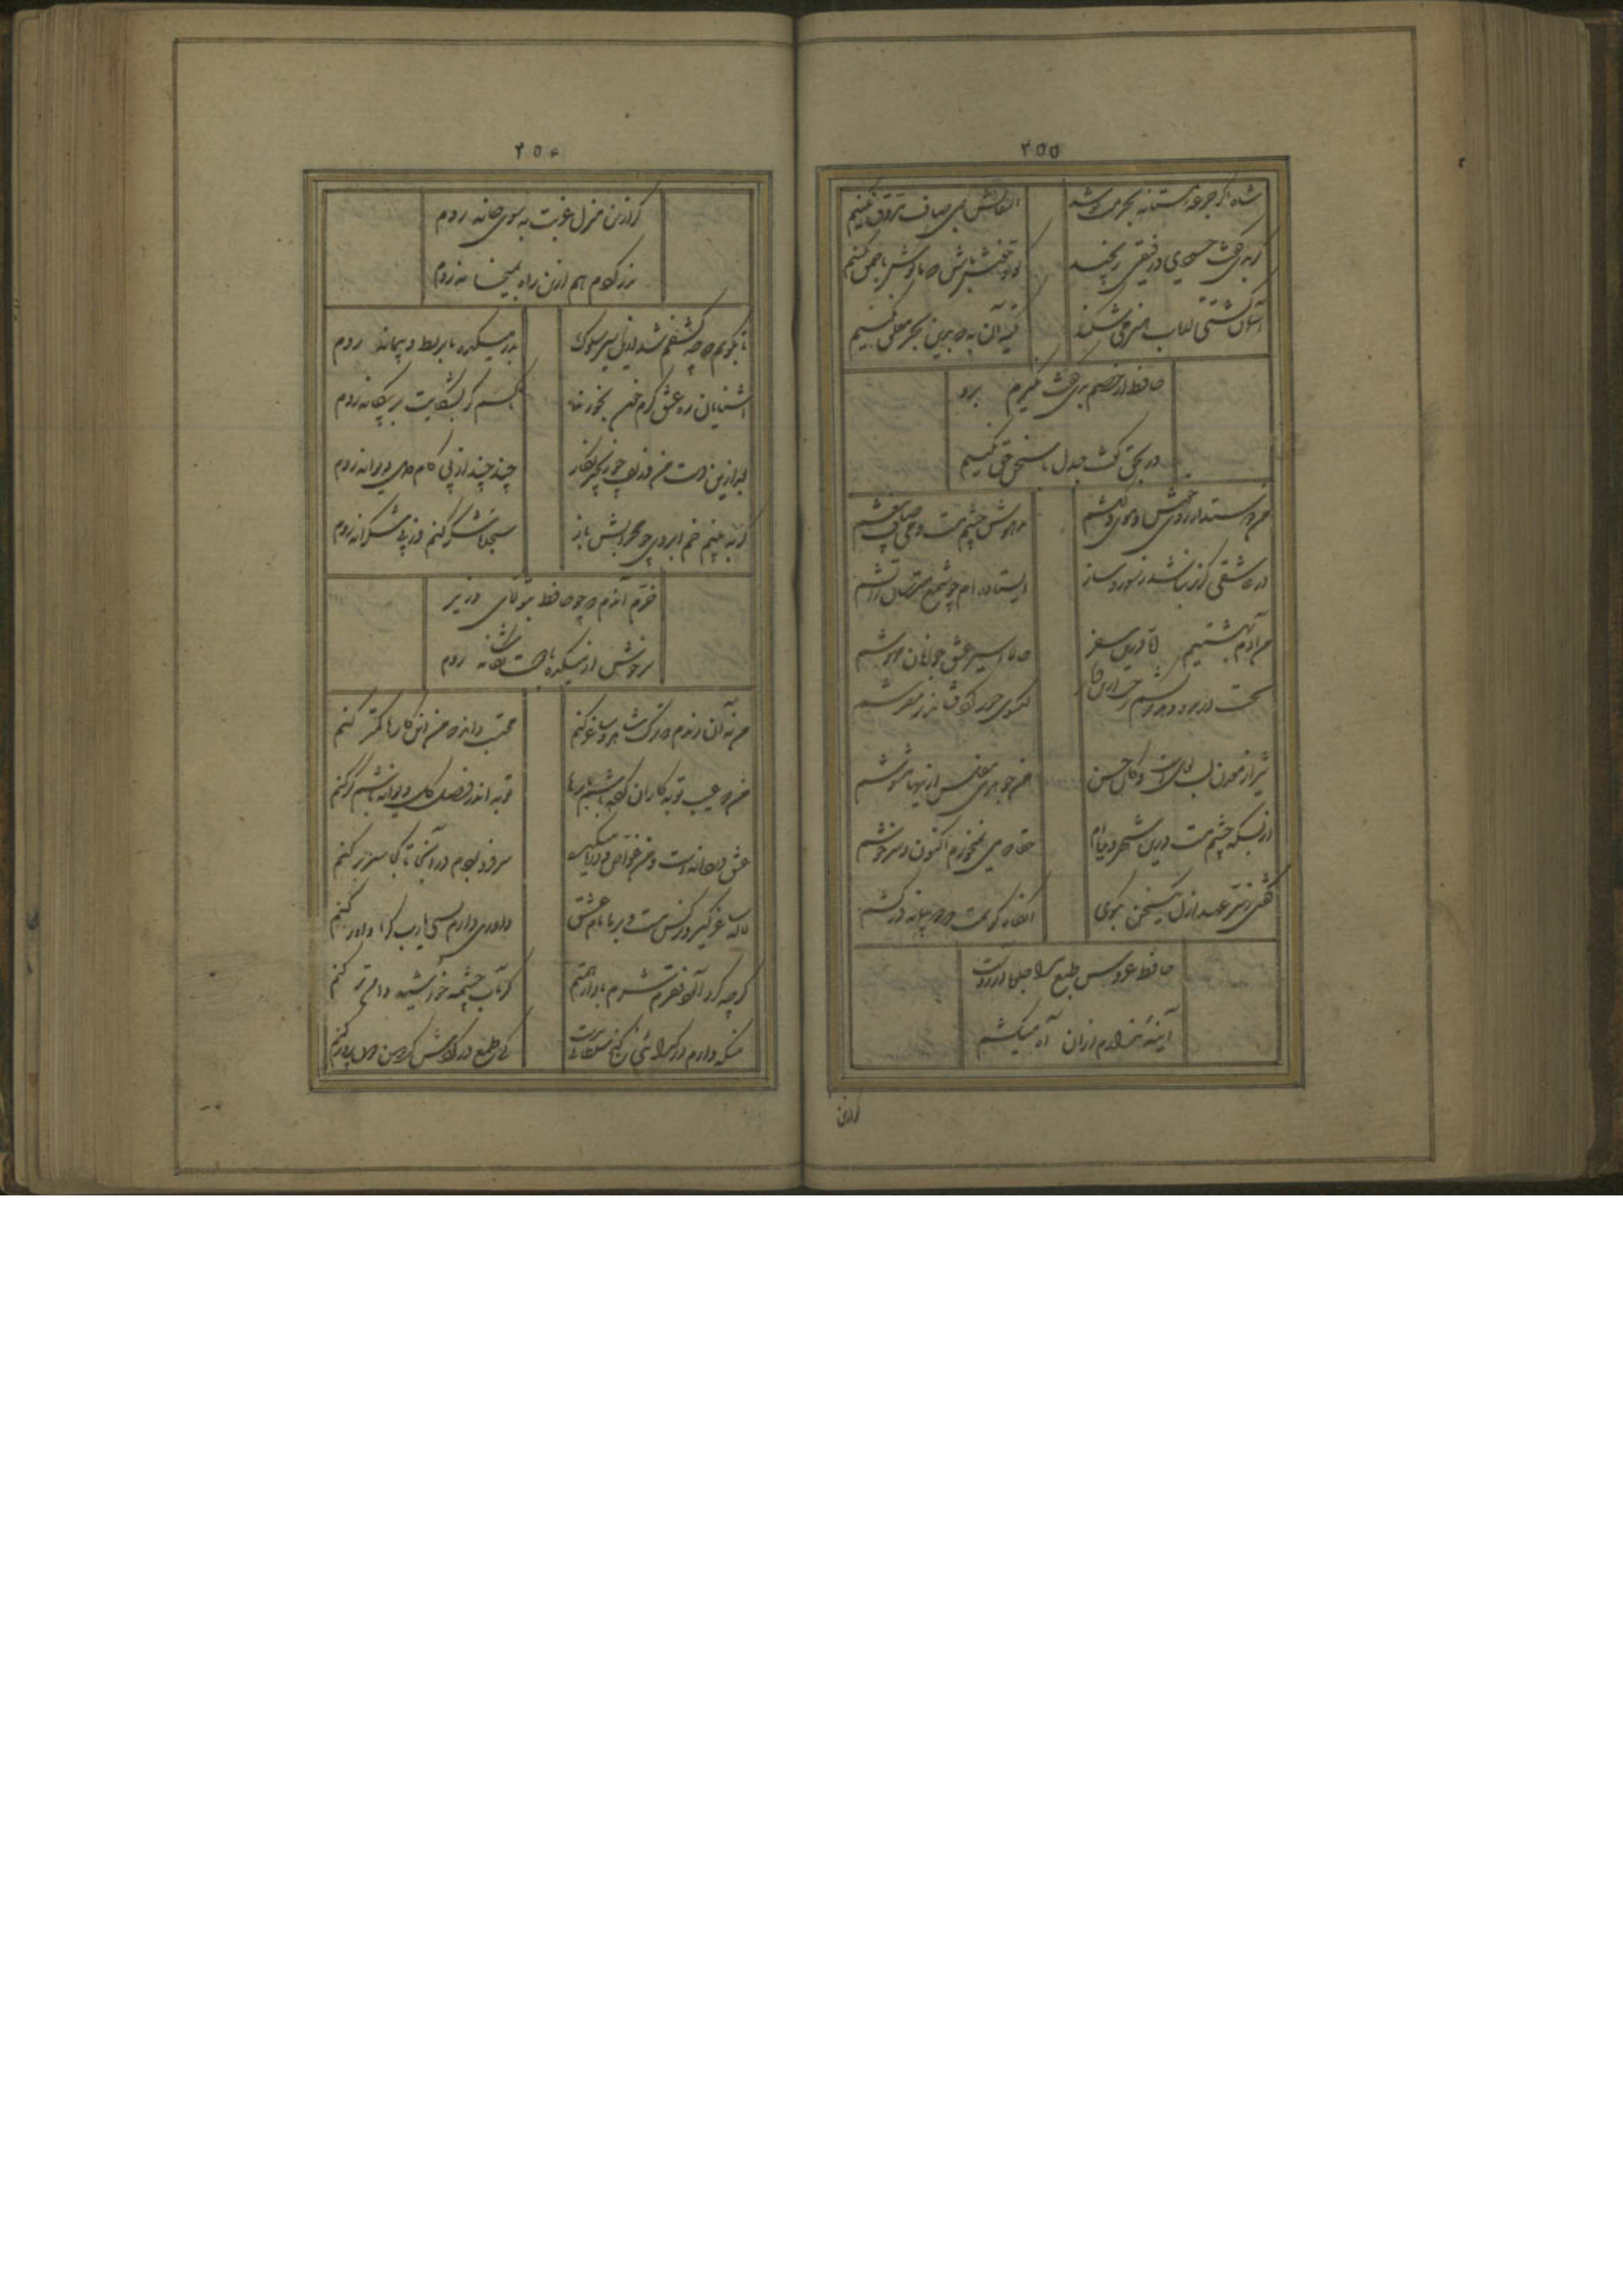 ۲۵۵
شاه اگر جرعه مستانه بحرمت نوشد
التفاتش بمی صاف مروق نکنیم
گر بدی گفت حسودی و رفیقی رنجید
گو تو خوش باش که ما گوش باحمق نکنیم
آسمان کشتی ارباب هنر می شکند
تکیه آن به که برین بحر معلق نکنیم
حافظ ار خصم بدی گفت نگیرم برو
ور بحق گفت جدل با سخن حق نکنیم
من دوستدار روی خوش و موی دلکشم
مدهوش چشم مست و می صاف بیغشم
در عاشقی گزیر نباشد ز سوز و ساز
ایستاده ام چو شمع مترسان ز آتشم
من آدم بهشتیم اما درین سفر
حالا اسیر عشق جوانان مهوشم
بخت ار مدد دهد
گیسوی حور گرد فشاند ز مفرشم
شیراز معدن لب لعل است و کان حسن
من جوهری مفلس از آنرو مشوشم
از بسکه چشم مست درین شهر دیده ام
حقا که می نمیخورم اکنون و سرخوشم
گفتی ز سر عهد ازل یک سخن بگوی
آنگاه گویمت که دو پیمانه درکشم
حافظ عروس طبع مرا جلوه آرزوست
آیینه ندارم از آن آه میکشم
گر ازین
۲۵۶
گر ازین منزل غربت به سوی خانه روم
نزد گر هم ازین راه بمیخانه روم
تا بگویم که چه کشفم شد ازین سیر سلوک
بدر میکده با بربط و پیمانه روم
آشنایان ره عشق گرم خون بخورند
ناکسم گر بشکایت بر بیگانه روم
بعد ازین دست من و زلف چو زنجیر نگار
چند چند از پی کام دل دیوانه روم
گر به بینم خم ابروی چو محرابش باز
سجده شکر کنم وز پی شکرانه روم
خرم آندم که چو حافظ بتولای وزیر
سرخوش از میکده با دوست بکاشانه روم
من نه آن رندم که ترک شاهد و ساغر کنم
محتسب داند که من این کارها کمتر کنم
من که عیب توبه کاران کرده باشم بارها
توبه اندر فصل گل دیوانه باشم گر کنم
عشق دردانه است و من غواص و دریا میکده
سر فرو بردم در آنجا تا کجا سر بر کنم
لاله ساغر گیر و نرگس مست و بر ما نام فسق
داوری دارم بسی یارب کرا داور کنم
گرچه گرد آلود فقرم شرم باد از همتم
گر بآب چشمه خورشید دامن تر کنم
منکه دارم در گدائی گنج سلطانی بدست
کی طمع در گردش گردون دون پرور کنم